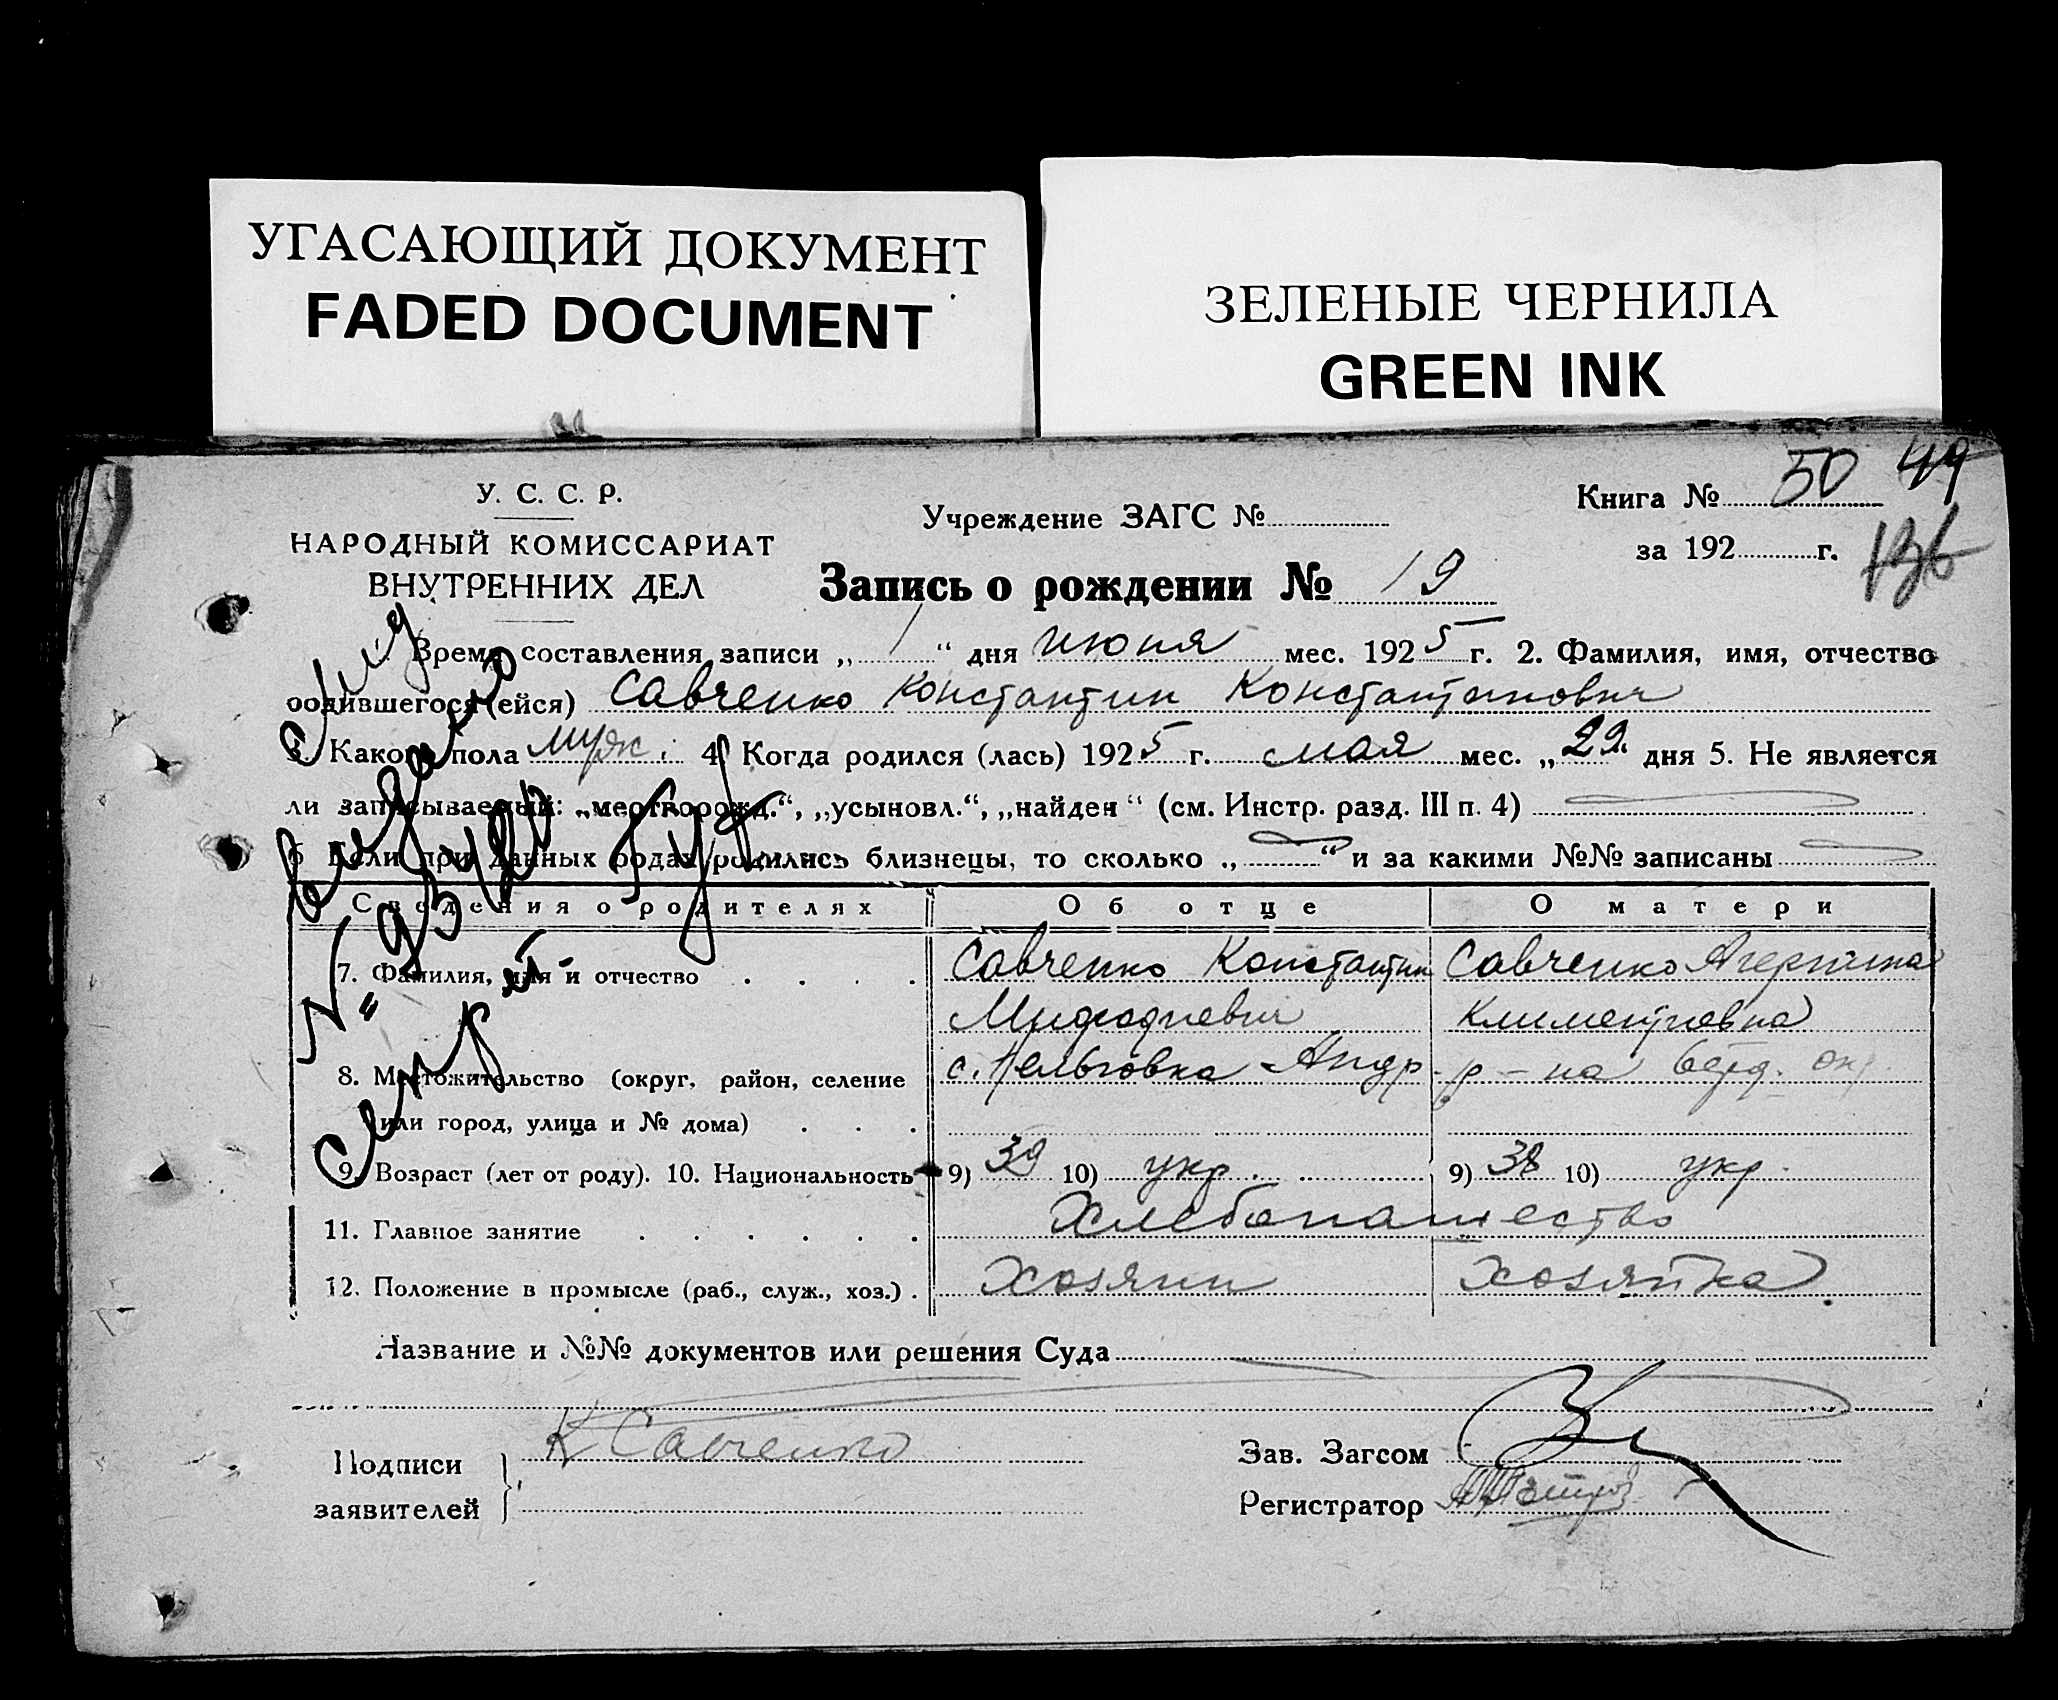 УГАСАЮЩИЙ ДОКУМЕНТ
FADED DOCUMENT
ЗЕЛЕНЫЕ ЧЕРНИЛА
GREEN INK
У. С. С. Р.
НАРОДНЫЙ КОМИССАРИАТ
ВНУТРЕННИХ ДЕЛ
Учреждение ЗАГС №
Книга № 50 49
за 192 г. 136
Запись о рождении № 19
Время составления записи „ 1 “ дня июня мес. 1925 г. 2. Фамилия, имя, отчество
родившегося (ейся) Савченко Константин Константинович
3. Какого пола муж. 4. Когда родился (лась) 1925 г. мая мес. „29“ дня 5. Не является
ли записываемый: „мертворожд.“, „усыновл.“, „найден“ (см. Инстр. разд. III п. 4)
6 Если при данных родах родились близнецы, то сколько „ “ и за какими №№ записаны
Сведения о родителях Об отце О матери
7. Фамилия, имя и отчество . . . . Савченко Константин Савченко
Мифодиевич Климентиевна
8. Местожительство (округ, район, селение с. Андр. р-на Берд. окр
или город, улица и № дома) . . .
9. Возраст (лет от роду). 10. Национальность 9) 39 10) укр. 9) 38 10) укр.
11. Главное занятие . . . . . . Хлебопашество
12. Положение в промысле (раб., служ., хоз.) . Хозяин хозяйка
Название и №№ документов или решения Суда
Подписи заявителей К Савченко
Зав. Загсом
Регистратор
выдано